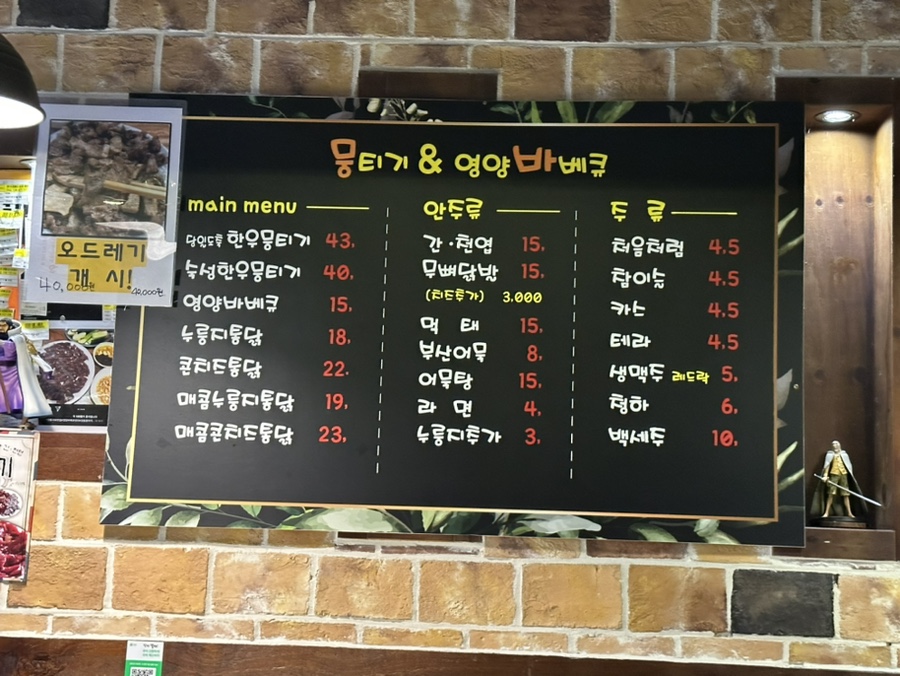 뭉티기 & 영양바베큐
main menu
당일도축 한우뭉티기 43.
숙성한우뭉티기 40.
영양바베큐 15.
누룽지통닭 18.
콘치즈통닭 22.
매콤누룽지통닭 19.
매콤콘치즈통닭 23.
안주류
간·천엽 15.
무뼈닭발 15.
(치즈추가) 3.000
먹태 15.
부산어묵 8.
어묵탕 15.
라면 4.
누룽지추가 3.
주류
처음처럼 4.5
참이슬 4.5
카스 4.5
테라 4.5
생맥주 레드락 5.
청하 6.
백세주 10.
오드레기
개시!
40,000원 40,000원